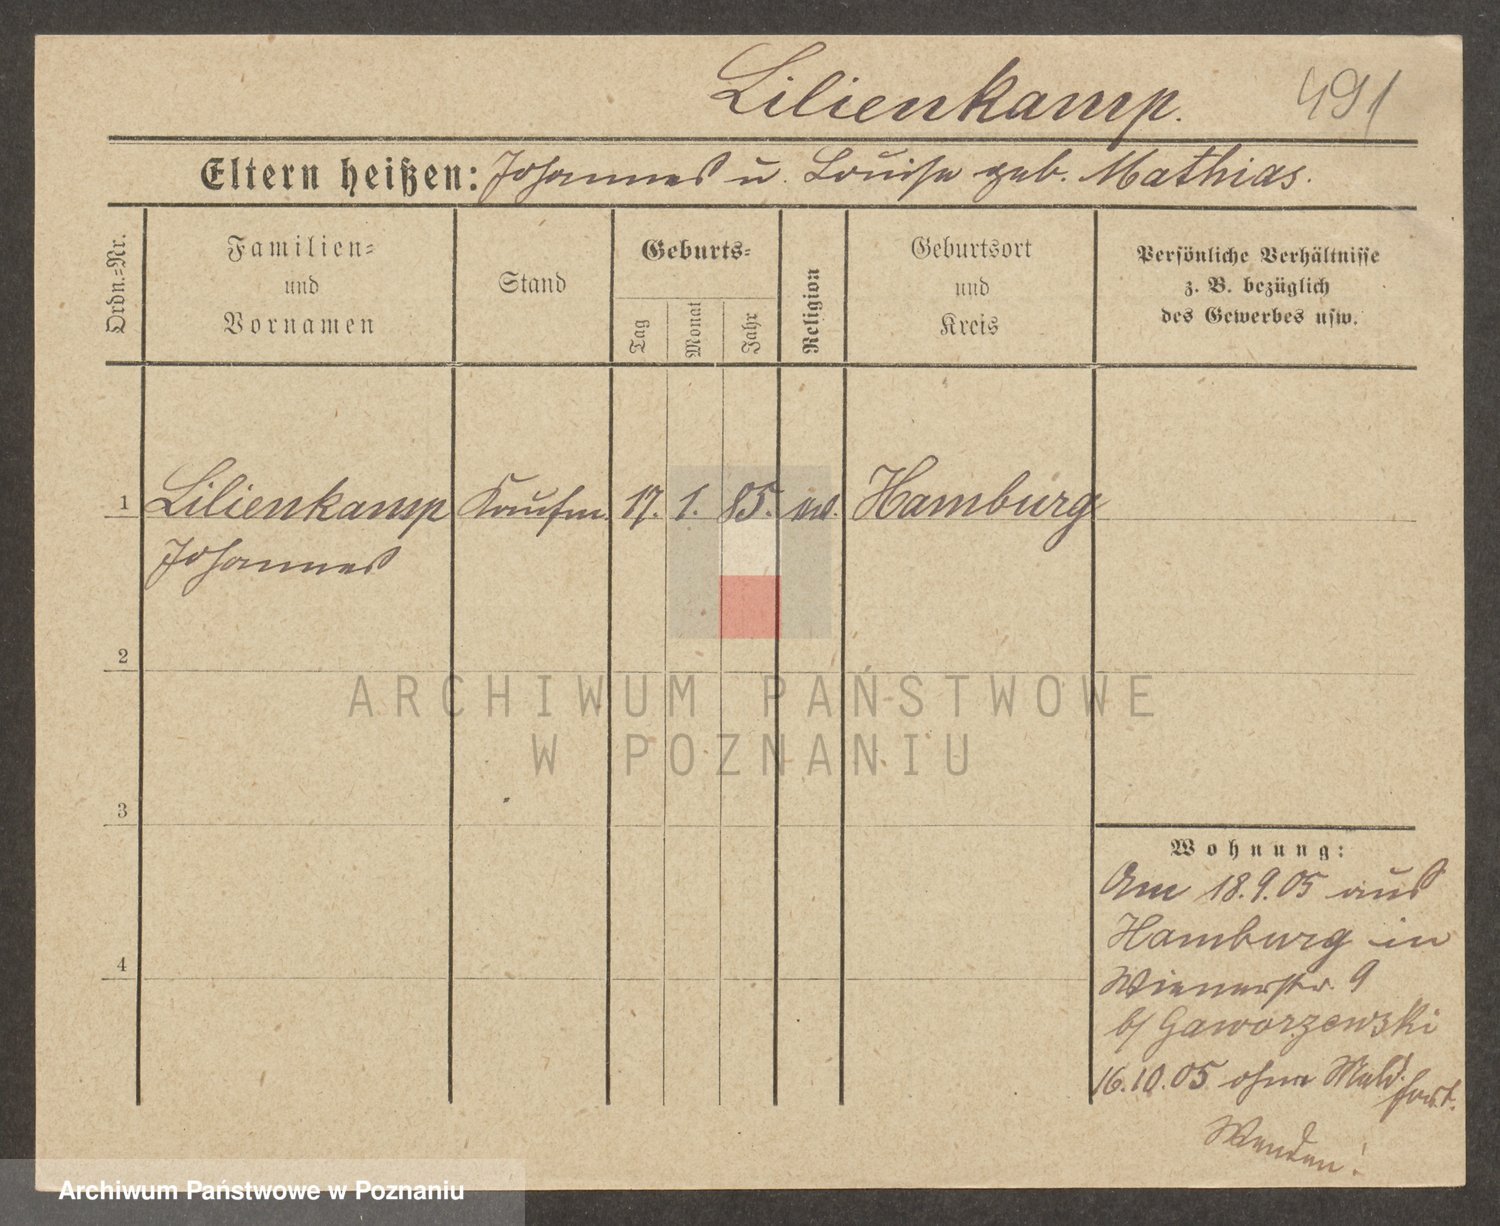 Lilienkamp. 491
Eltern heißen: Johannes u. Louise geb. Mathias.
Ordn.=Nr.
Familien=
und
Vornamen
Stand
Geburts=
Tag
Monat
Jahr
Religion
Geburtsort
und
Kreis
Persönliche Verhältnisse
z. B. bezüglich
des Gewerbes usw.
1 Lilienkamp Kaufm. 17. 1. 85. Hamburg
Johannes
2
3
4
Wohnung:
Am 18.9.05 aus
Hamburg in
Wienerstr. 9
b/ Gaworzewski
16.10.05 ohne Meld.
fort.
Wenden!
ARCHIWUM PAŃSTWOWE
W POZNANIU
Archiwum Państwowe w Poznaniu